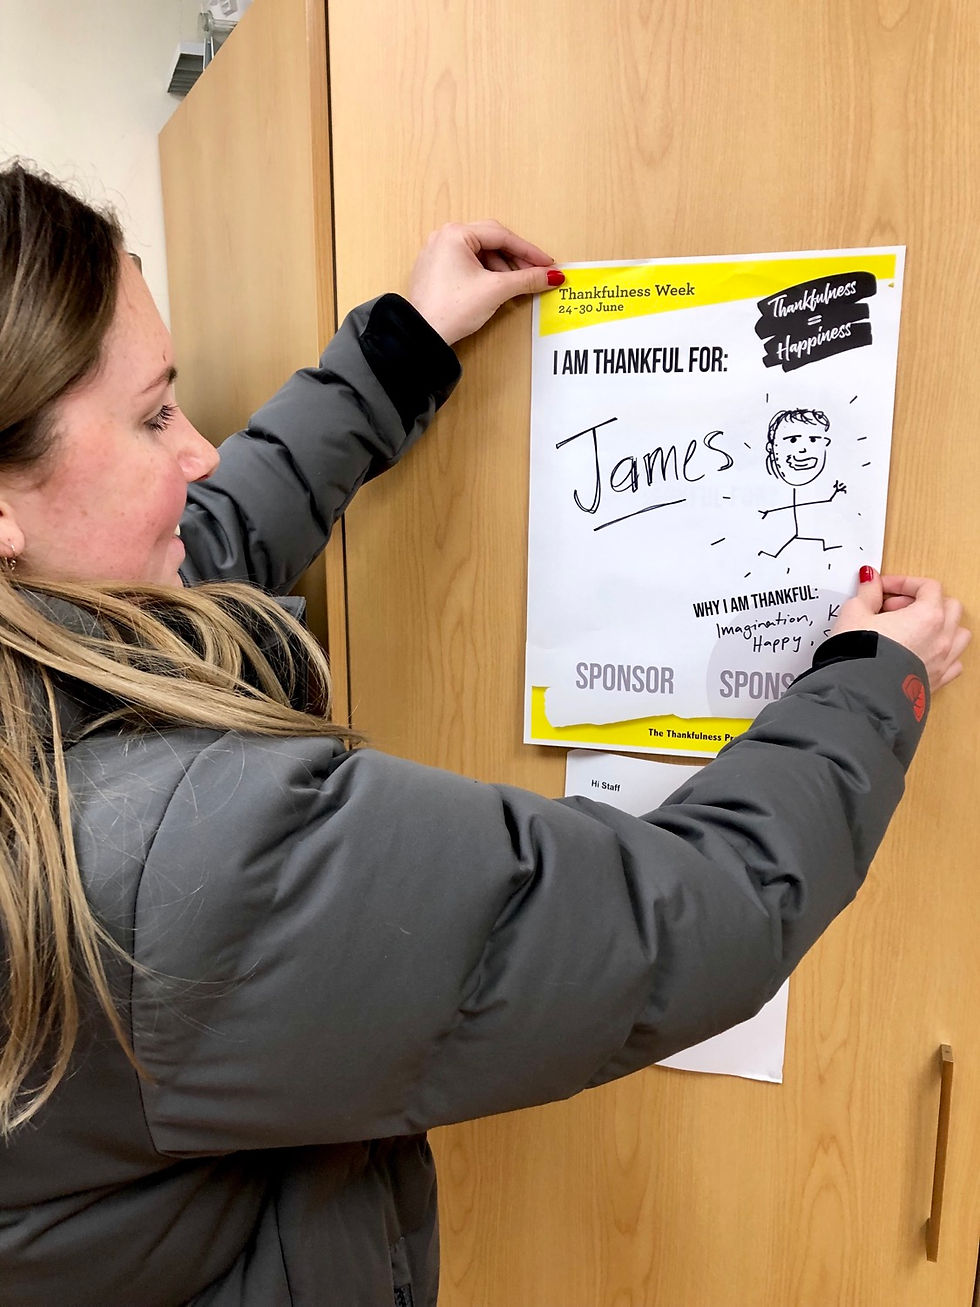 Thankfulness Week
24-30 June
Thankfulness
=
Happiness
I AM THANKFUL FOR:
James
WHY I AM THANKFUL:
Imagination, K
Happy, S
SPONSOR SPONS
The Thankfulness Pr
Hi Staff